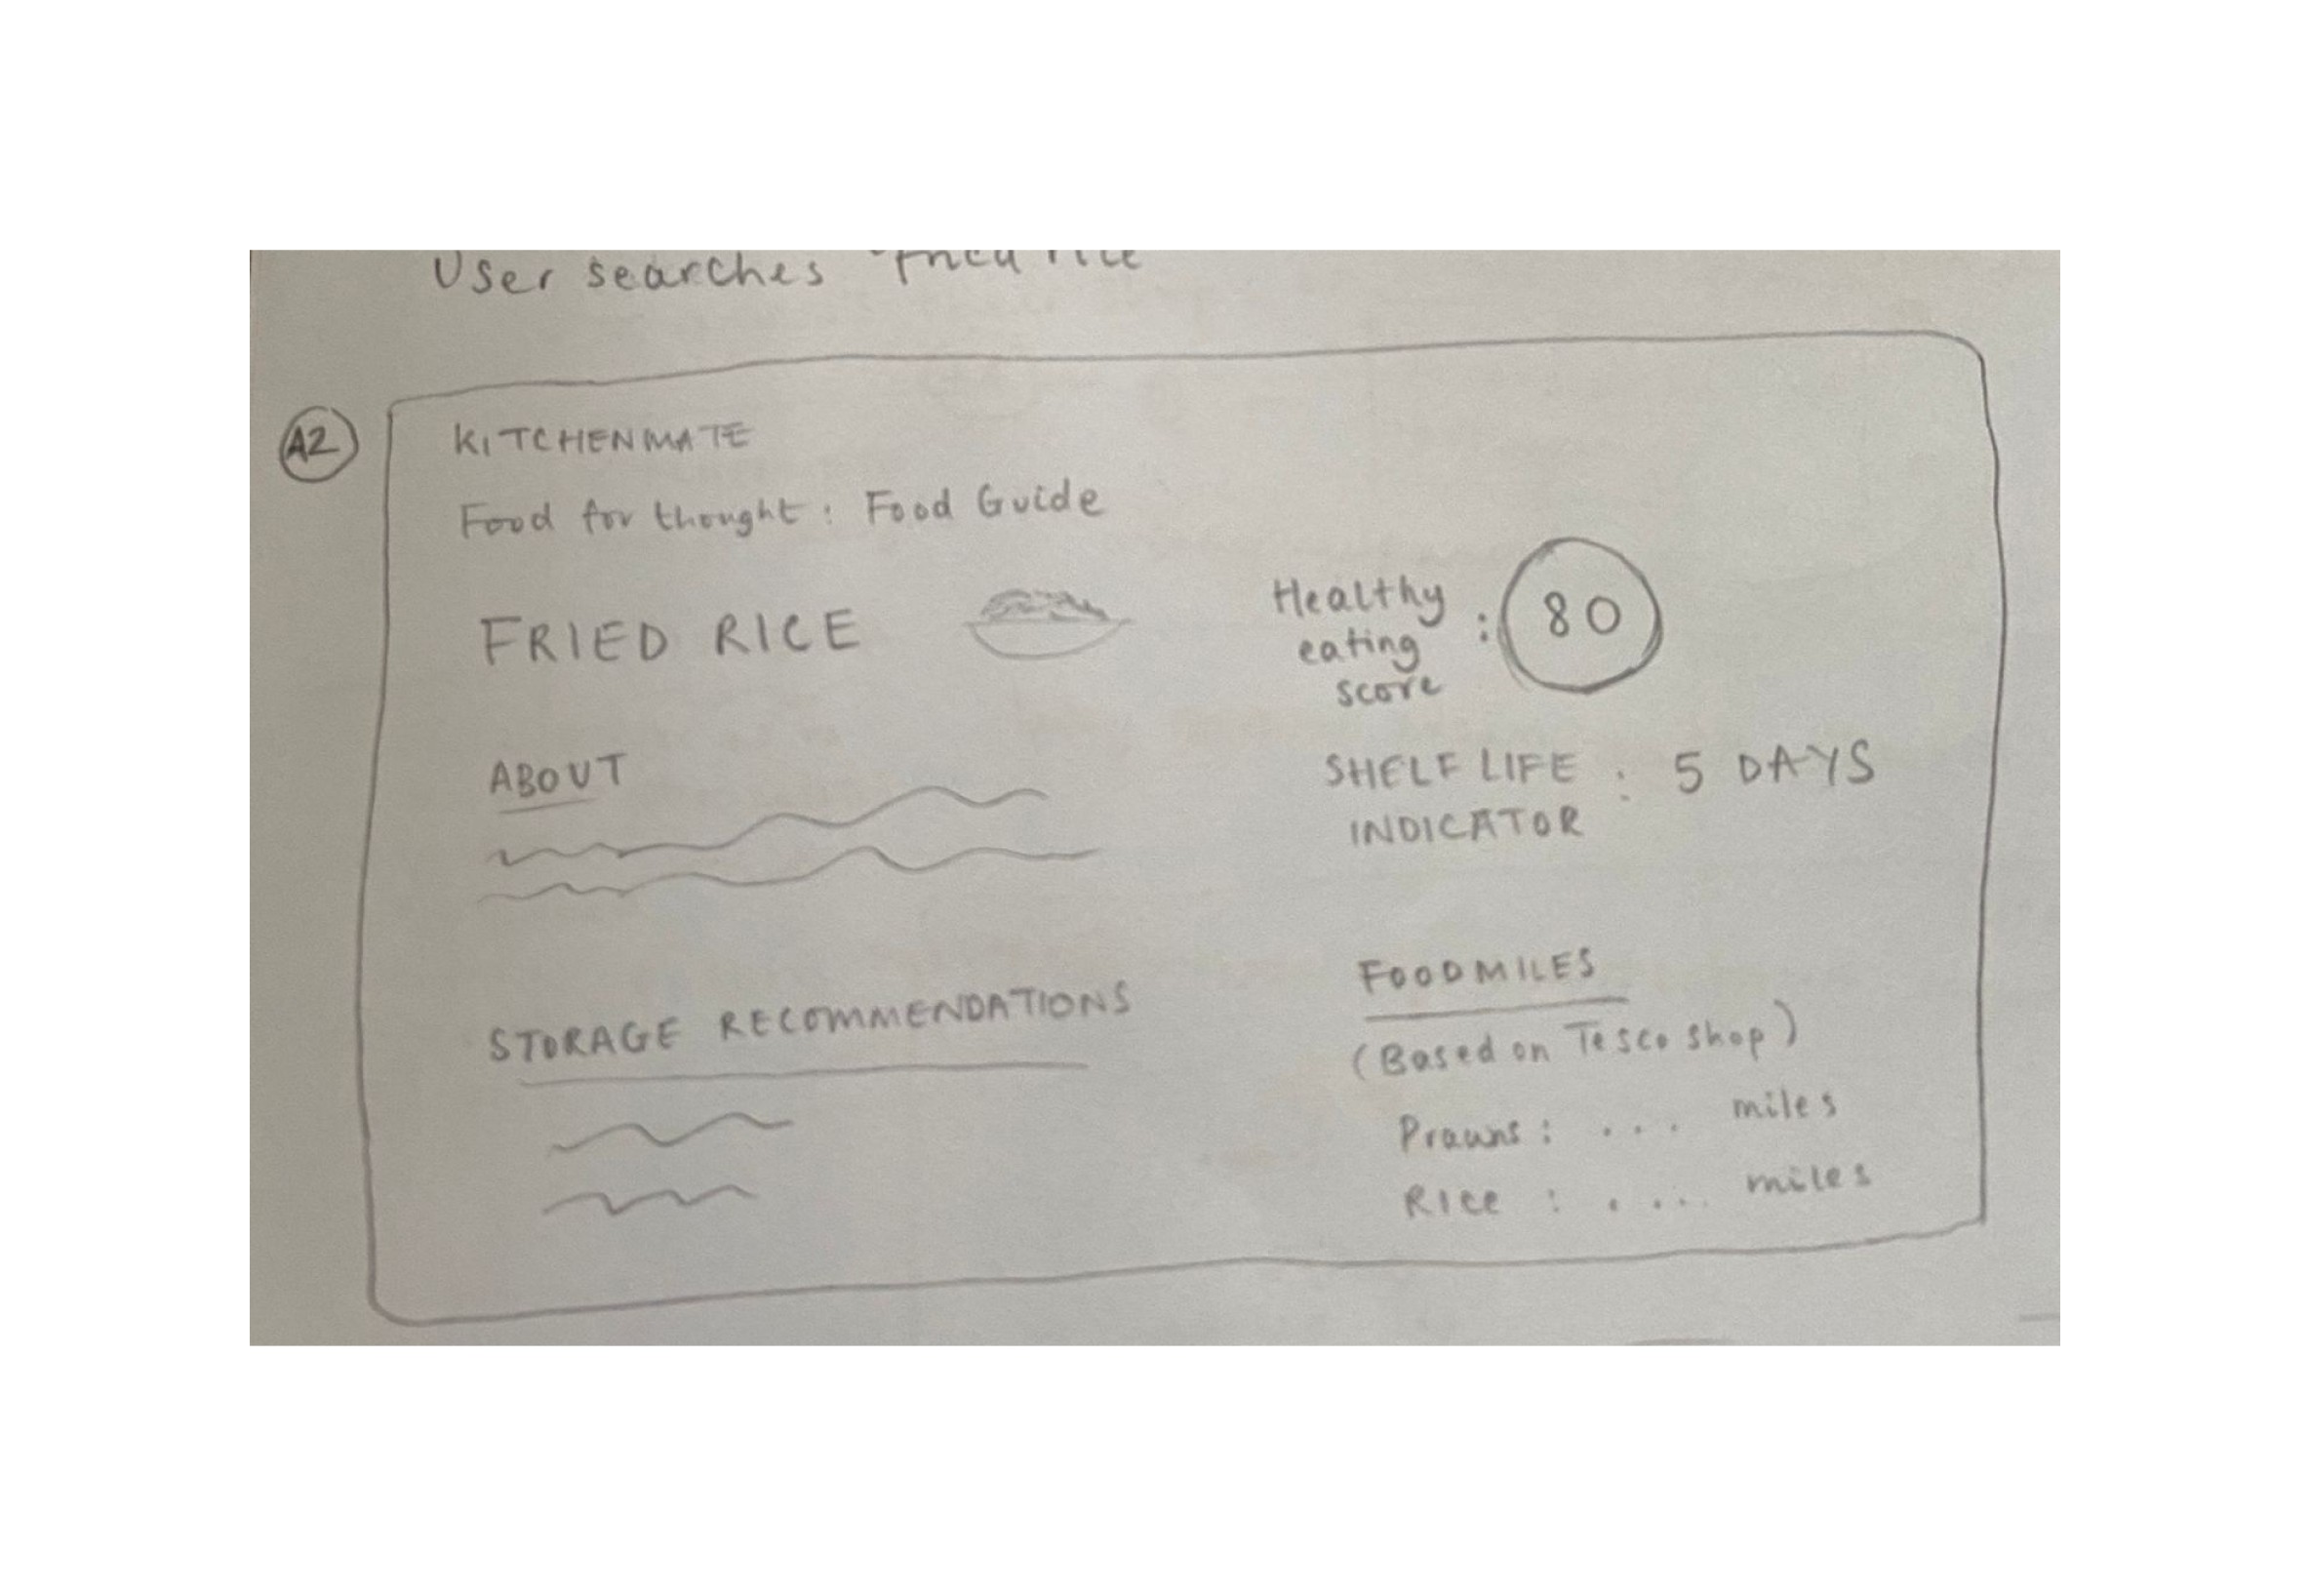 User searches "Fried rice
A2
KITCHENMATE
Food for thought : Food Guide
FRIED RICE
Healthy
eating
score
: 80
ABOUT
SHELF LIFE : 5 DAYS
INDICATOR
STORAGE RECOMMENDATIONS
FOODMILES
(Based on Tesco shop)
Prawns : ... miles
Rice : .... miles